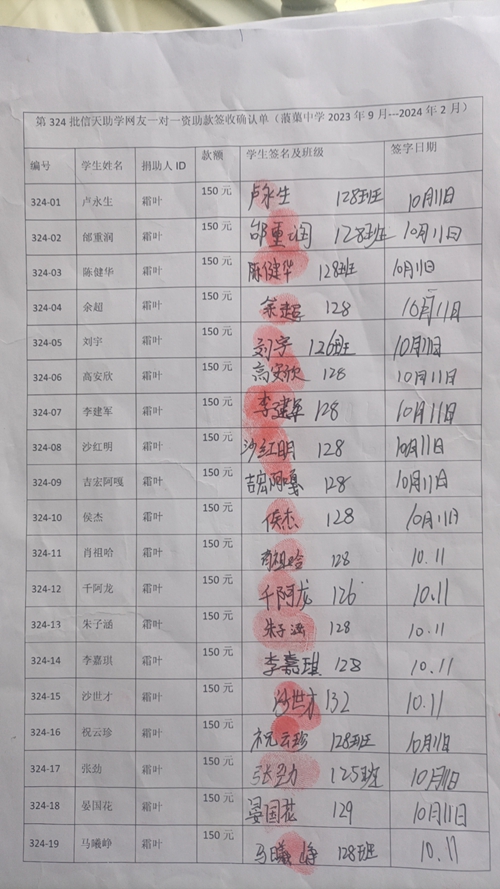 第 324 批信天助学网友一对一资助款签收确认单（蒗蕖中学 2023 年 9 月---2024 年 2 月）
编号 学生姓名 捐助人 ID 款额 学生签名及班级 签字日期
324-01 卢永生 霜叶 150 元 卢永生 128班 10月11日
324-02 邰重润 霜叶 150 元 邰重润 128班 10月11日
324-03 陈健华 霜叶 150 元 陈健华 128班 10月11日
324-04 余超 霜叶 150 元 余超 128 10月11日
324-05 刘宇 霜叶 150 元 刘宇 126班 10月11日
324-06 高安欣 霜叶 150 元 高安欣 128 10月11日
324-07 李建军 霜叶 150 元 李建军 128 10月11日
324-08 沙红明 霜叶 150 元 沙红明 128 10月11日
324-09 吉宏阿嘎 霜叶 150 元 吉宏阿嘎 128 10月11日
324-10 侯杰 霜叶 150 元 侯杰 128 10月11日
324-11 肖祖哈 霜叶 150 元 肖祖哈 128 10.11
324-12 千阿龙 霜叶 150 元 千阿龙 126 10.11
324-13 朱子涵 霜叶 150 元 朱子涵 128 10.11
324-14 李嘉琪 霜叶 150 元 李嘉琪 128 10.11
324-15 沙世才 霜叶 150 元 沙世才 132 10.11
324-16 祝云珍 霜叶 150 元 祝云珍 128班 10月11日
324-17 张劲 霜叶 150 元 张劲 125班 10月11日
324-18 晏国花 霜叶 150 元 晏国花 129 10月11日
324-19 马曦峥 霜叶 150 元 马曦峥 128班 10.11